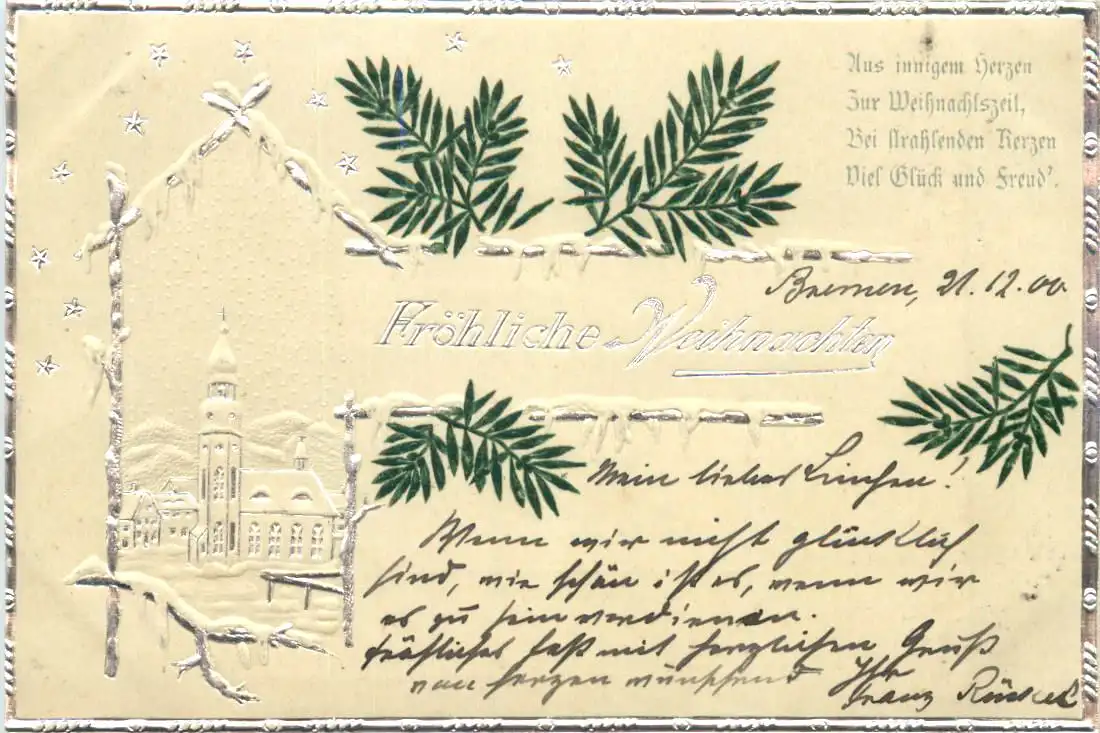 Aus innigem Herzen
Zur Weihnachtszeit,
Bei strahlenden Kerzen
Viel Glück und Freud'.
Bremen, 21.12.00
Fröhliche Weihnachten
Mein liebes Linchen!
Wenn wir nicht glücklich
sind, wie schön ist es, wenn wir
es zu sein verdienen.
Fröhliches Fest mit herzlichem Gruß
von Herzen wünschend Ihr
Franz